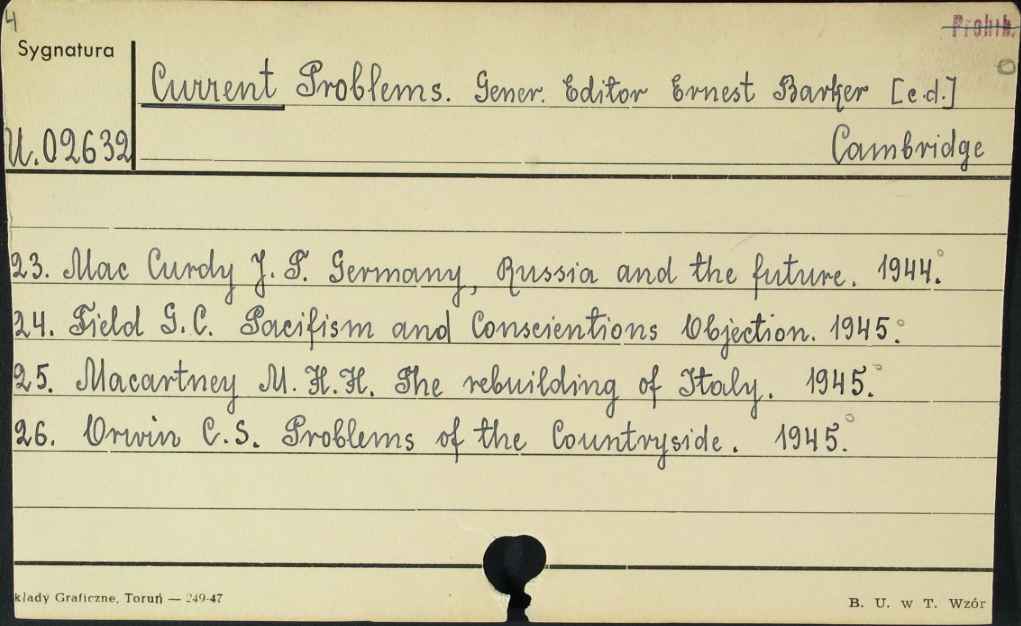 4
Prohib.
Sygnatura
Current Problems. Gener. Editor Ernest Barker [e.d.]
U.02632
Cambridge
23. Mac Curdy J. T. Germany, Russia and the future. 1944.°
24. Field G.C. Pacifism and Conscientions Objection. 1945.°
25. Macartney M. H.H. The rebuilding of Italy. 1945.°
26. Orwin C.S. Problems of the Countryside. 1945.°
kłady Graficzne, Toruń — 249-47
B. U. w T. Wzór